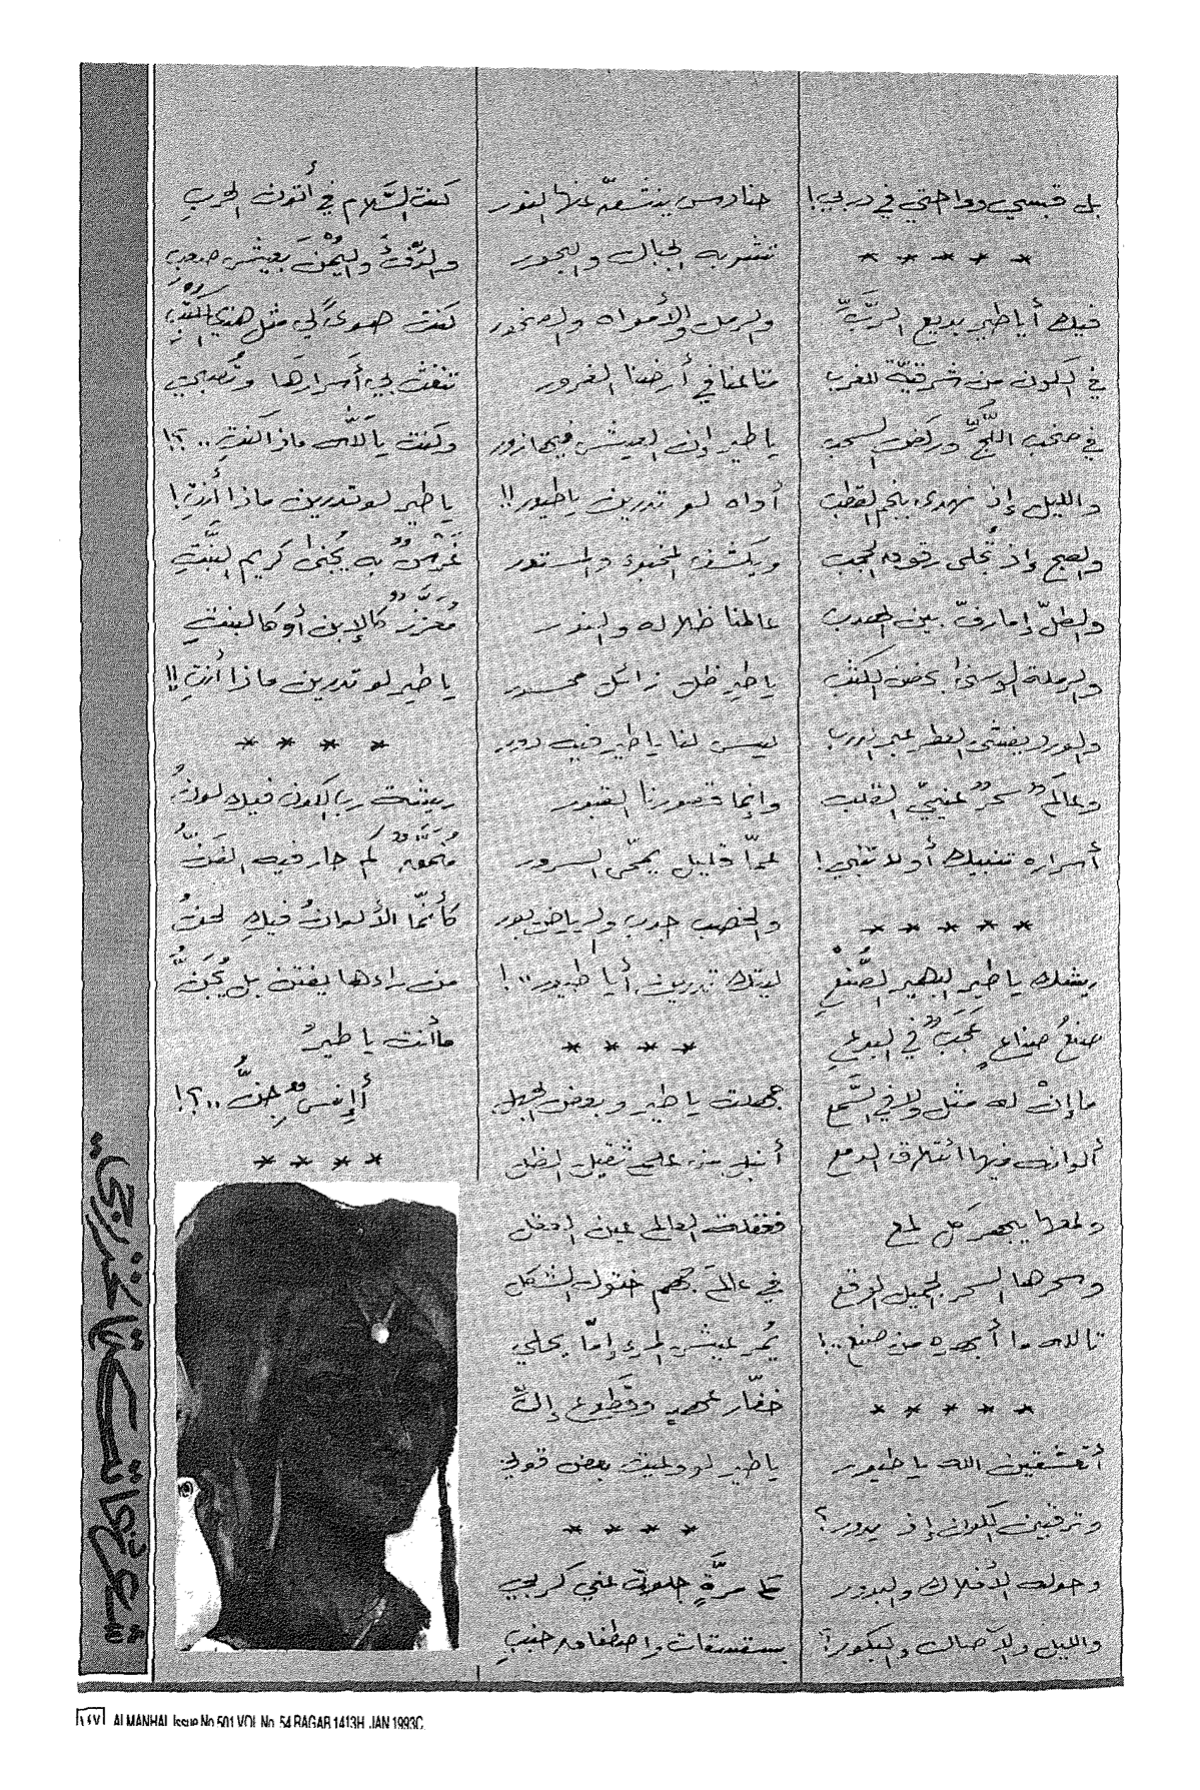 بل قبسي وواحتي في دربي!
* * * * *
فيك أيا طير بديع الرَّبِّ
في الكون من شرقيّه للغرب
في صخب اللُّجِّ وركض السحب
والليل إذ نهدى بنجم القطب
والصبح إذ تُجلى رقوم الحجب
والطلّ إما رفّ بين الهدب
والرملة الوسنى بحضن الكثب
والورد يفشي العطر عبر الدرب
وعالمٌ سحرٌ عنيّ القلب
أسراره تنبيك أو لا تنبي!
* * * * *
ريشك يا طير البهير الصُّنعِ
صنعُ صناعٍ عَجَبٌ في البدعِ
ما إنْ له مثل ولا في السَّمع
ألوانه فيها ائتلاق الدمع
ولمعها يبهر كل لمع
وسحرها السحر الجميل الوقع
تالله ما أبهره من صنع..!
* * * * *
أتعشقين الله يا طيور
وترقبين الكون إذ يدور؟
وحوله الأفلاك والبدور
والليل والآصال والبكور؟!
حنادس ينشقّ عنها النور
تشربه الجبال والبحور
والرمل والأمواه والصخور
متاعنا في أرضنا الغرور
يا طير إن العيش فيها زور
أواه لو تدرين يا طيور!!
ويكشف المخبوء والمستور
عالمنا ظلاله والنور
يا طيرِ ظل زائل محسور
ليس لنا يا طير فيه دور
وإنما قصورنا القبور
عمّا قليل يمّحى السرور
والخصب جدب والرياض بور
ليتك تدرين أيا طيور..!
* * * *
جهلت يا طير وبعض الجهل
أنبل من علم ثقيل الظل
فغفلة العالم عين العقل
في عالم جهم ختول الشكل
يُمر عيش المرء إمّا يحلي
خفّار عهدٍ وقَطوع إلِّ
يا طير لو وعيت بعض قولي
* * * *
كم مرَّةٍ جلوتِ عني كربي
بسقسقات واصطفاق جنبِ
كنت السَّلام في أتون الحربِ
والدِّفءَ واليُمْنَ بَعيشٍ صعبِ
كنت صوىً لي مثل هذي الكُتْبِ
تنفث بي أسرارَها وتُصبي
وكنت يا لَله ماذا كنتِ..؟!
يا طير لو تدرين ماذا أنتِ!
غَرْسٌ به يُجنى كريم النَّبْتِ
مُعَزَّزٌ كالإبن أو كالبنتِ
يا طير لو تدرين ماذا أنتِ!!
* * * *
ريشة رب الكون فيك لونُ
مُنَمَّقٌ كم حار فيه الفَنُّ
كأنّما الألوانُ فيكِ لحنُ
من راءها يفتن بل يُجَنُّ
ما أنت يا طيرُ
أإنسٌ جِنُّ..؟!
* * * *
١٤٧ ALMANHAL Issue No 501 VOL No. 54 RAGAB 1413H. JAN 1993C.